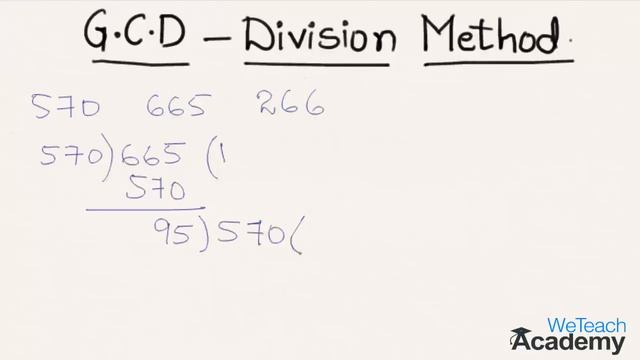 G.C.D – Division Method.
570 665 266
570)665(1
570
95)570(
WeTeach
Academy